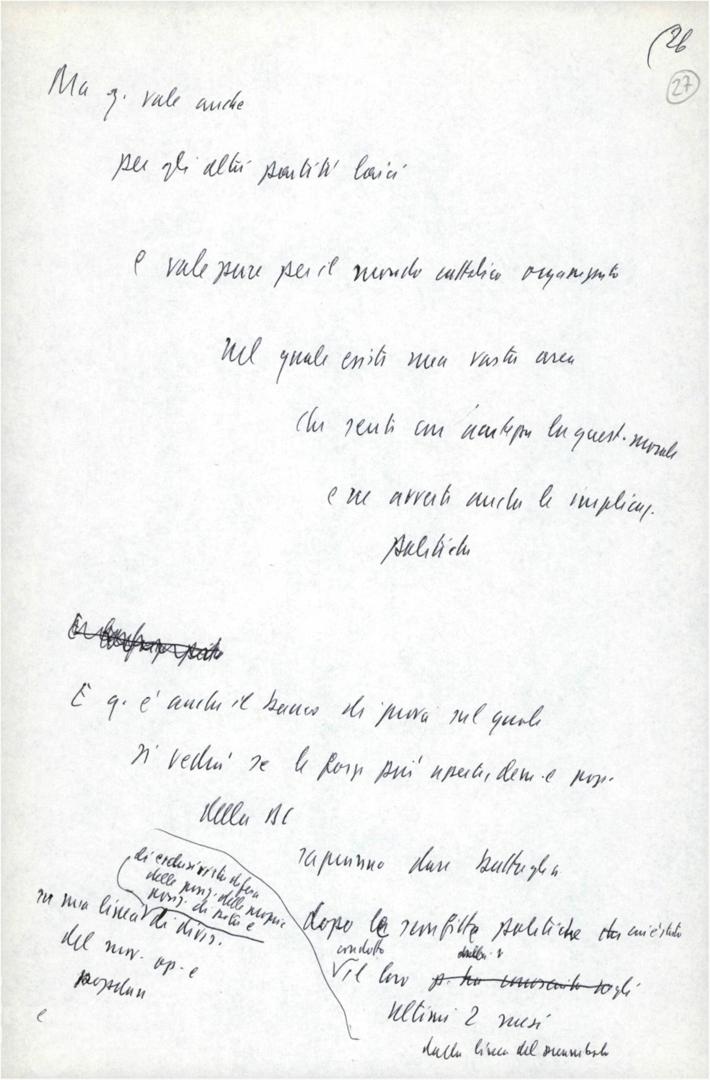 (26
27
Ma q. vale anche
per gli altri partiti laici
e vale pure per il mondo cattolico organizzato
nel quale esiste una vasta area
che sente con la quest. morale
e ne avverte anche le implicaz.
politiche
E q. è anche il banco di prova sul quale
si vedrà se le forze più aperte, dem. e pop.
della DC
sapranno dare battaglia
dopo le sconfitte politiche cui è stato
condotto dalla
il loro p. ha conosciuto negli
ultimi 2 mesi
dalla linea del preambolo
di esclusivista difesa
delle posiz. delle proprie
posiz. di potere e
su una linea di divis.
del mov. op. e
popolare
e